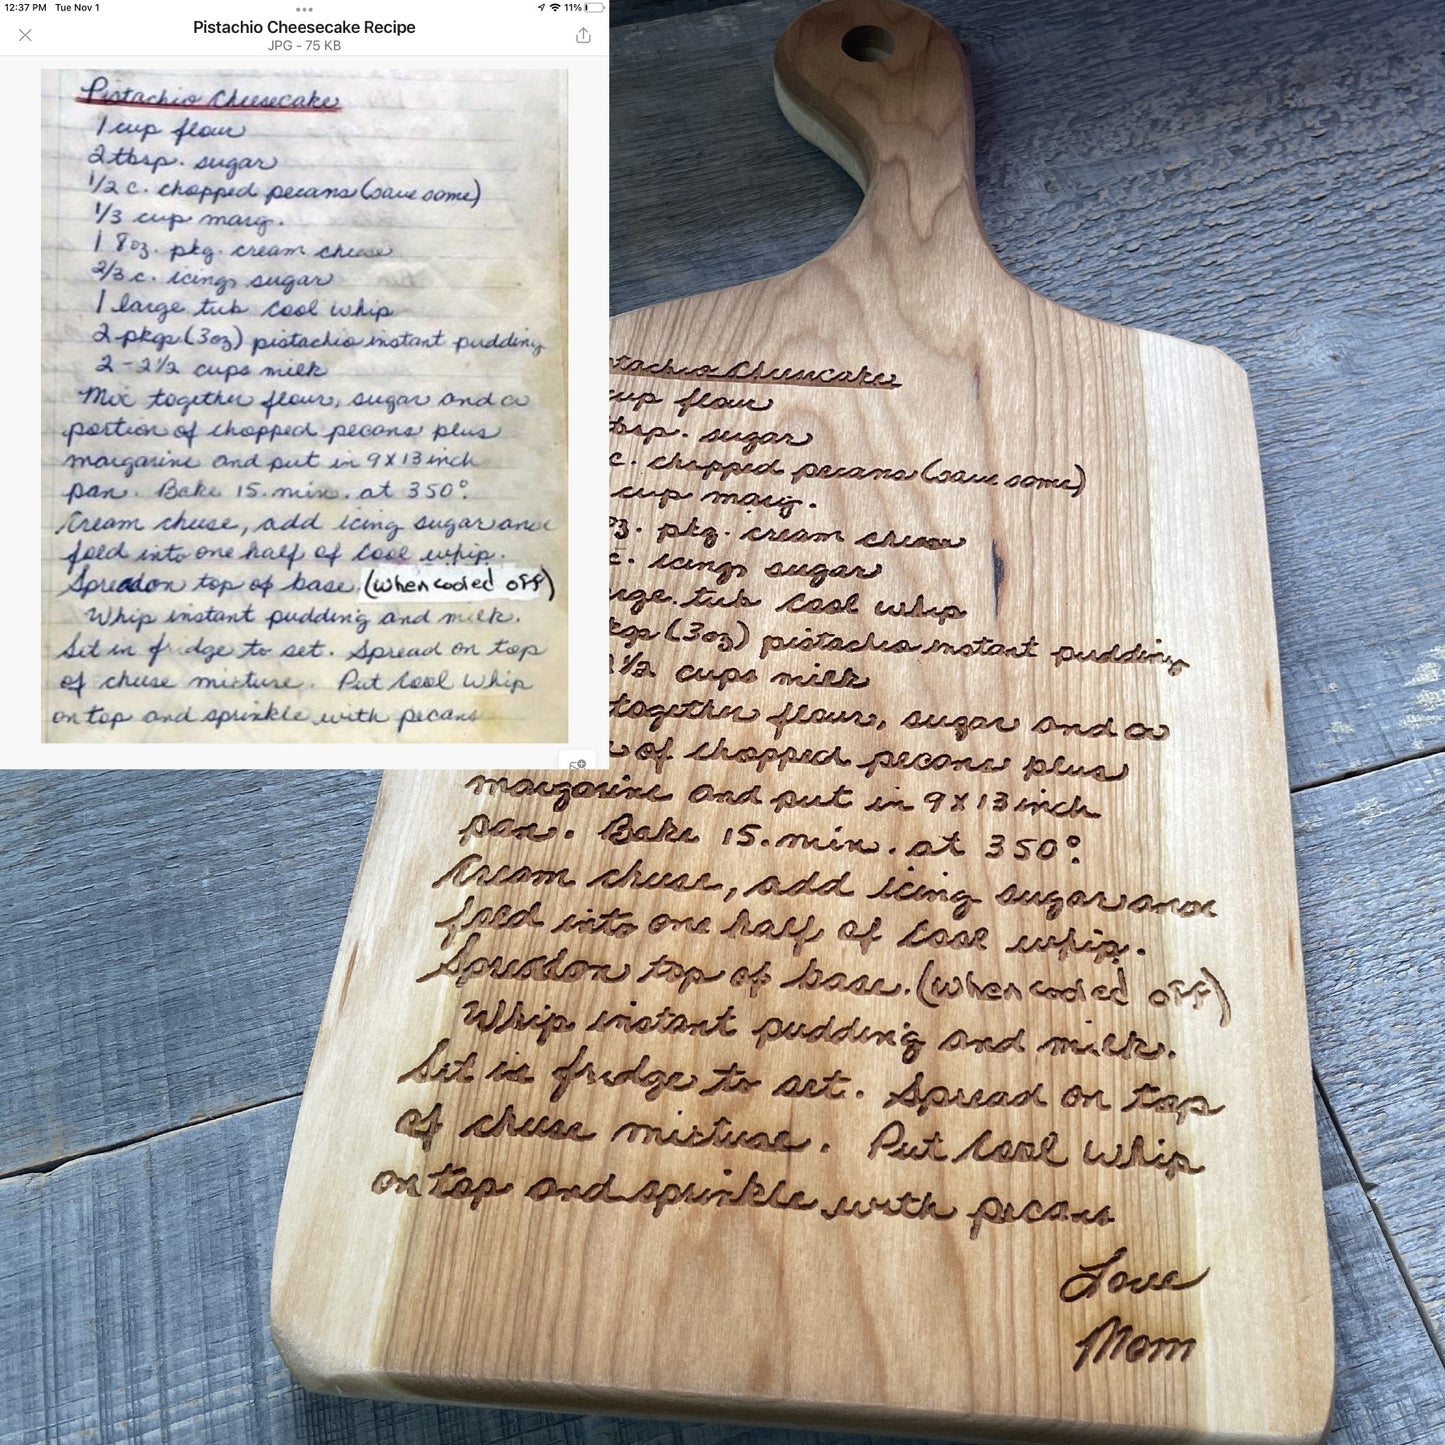 12:37 PM Tue Nov 1
11%
Pistachio Cheesecake Recipe
JPG - 75 KB
Pistachio Cheesecake
1 cup flour
2 tbsp. sugar
1/2 c. chopped pecans (save some)
1/3 cup marg.
1 8oz. pkg. cream cheese
2/3 c. icing sugar
1 large tub Cool whip
2-pkgs (3oz) pistachio instant pudding
2 - 2 1/2 cups milk
Mix together flour, sugar and a
portion of chopped pecans plus
margarine and put in 9 X 13 inch
pan. Bake 15. min. at 350°.
Cream cheese, add icing sugar and
fold into one half of Cool whip.
Spread on top of base. (when cooled off)
Whip instant pudding and milk.
Set in fridge to set. Spread on top
of cheese mixture. Put Cool Whip
on top and sprinkle with pecans
tachio Cheesecake
cup flour
bsp. sugar
c. chopped pecans (save some)
cup marg.
oz. pkg. cream cheese
c. icing sugar
rge tub Cool whip
kgs (3oz) pistachio instant pudding
1/2 cups milk
together flour, sugar and a
of chopped pecans plus
margarine and put in 9 X 13 inch
pan. Bake 15. min. at 350°.
Cream cheese, add icing sugar and
fold into one half of Cool whip.
Spread on top of base. (when cooled off)
Whip instant pudding and milk.
Set in fridge to set. Spread on top
of cheese mixture. Put Cool Whip
on top and sprinkle with pecans
Love
Mom